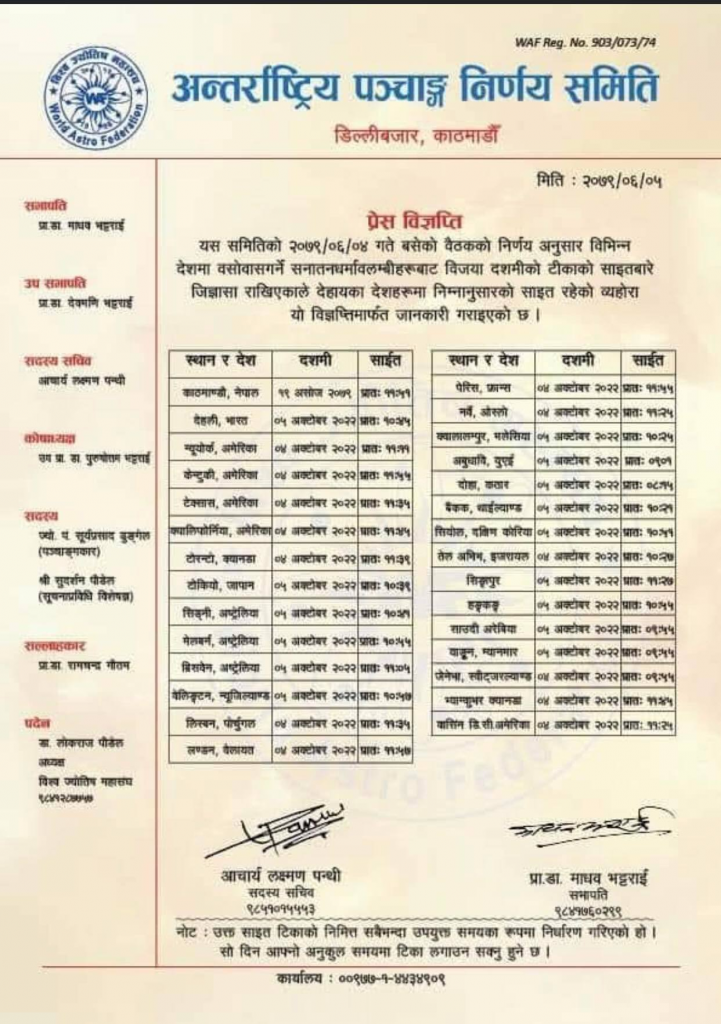 WAF Reg. No. 903/073/74
विश्व ज्योतिष महासंघ
WAF
World Astro Federation
अन्तर्राष्ट्रिय पञ्चाङ्ग निर्णय समिति
डिल्लीबजार, काठमाडौँ
मिति : २०७९/०६/०५
सभापति
प्रा.डा. माधव भट्टराई
उप सभापति
प्रा.डा. देवमणि भट्टराई
सदस्य सचिव
आचार्य लक्ष्मण पन्थी
कोषाध्यक्ष
उप प्रा. डा. पुरुषोत्तम भट्टराई
सदस्य
ज्यो. पं. सूर्यप्रसाद ढुङ्गेल
(पञ्चाङ्गकार)
श्री सुदर्शन पौडेल
(सूचनाप्रविधि विशेषज्ञ)
सल्लाहकार
प्रा.डा. रामचन्द्र गौतम
पदेन
डा. लोकराज पौडेल
अध्यक्ष
विश्व ज्योतिष महासंघ
९८४१२८७७५७
प्रेस विज्ञप्ति
यस समितिको २०७९/०६/०४ गते बसेको वैठकको निर्णय अनुसार विभिन्न
देशमा वसोवासगर्ने सनातनधर्मावलम्बीहरूबाट विजया दशमीको टीकाको साइतबारे
जिज्ञासा राखिएकाले देहायका देशहरूमा निम्नानुसारको साइत रहेको व्यहोरा
यो विज्ञप्तिमार्फत जानकारी गराइएको छ ।
स्थान र देश दशमी साईत
काठमाण्डौ, नेपाल १९ असोज २०७९ प्रातः ११:५१
देहली, भारत ०५ अक्टोबर २०२२ प्रातः १०:४५
न्यूयोर्क, अमेरिका ०४ अक्टोबर २०२२ प्रातः ११:११
केन्टुकी, अमेरिका ०४ अक्टोबर २०२२ प्रातः ११:५५
टेक्सास, अमेरिका ०४ अक्टोबर २०२२ प्रातः ११:३५
क्यालिफोर्निया, अमेरिका ०४ अक्टोबर २०२२ प्रातः ११:४५
टोरन्टो, क्यानडा ०४ अक्टोबर २०२२ प्रातः ११:३९
टोकियो, जापान ०५ अक्टोबर २०२२ प्रातः १०:३९
सिड्नी, अष्ट्रेलिया ०५ अक्टोबर २०२२ प्रातः
मेलबर्न, अष्ट्रेलिया ०५ अक्टोबर २०२२ प्रातः १०:५५
ब्रिसवेन, अष्ट्रेलिया ०५ अक्टोबर २०२२ प्रातः ११:०५
वेलिङ्टन, न्यूजिल्याण्ड ०५ अक्टोबर २०२२ प्रातः १०:५७
लिस्बन, पोर्चुगल ०४ अक्टोबर २०२२ प्रातः ११:३५
लण्डन, वेलायत ०४ अक्टोबर २०२२ प्रातः ११:५७
स्थान र देश दशमी साईत
पेरिस, फ्रान्स ०४ अक्टोबर २०२२ प्रातः ११:५५
नर्वे, ओस्लो ०४ अक्टोबर २०२२ प्रातः ११:२५
क्वालालम्पुर, मलेसिया ०५ अक्टोबर २०२२ प्रातः १०:२५
अबुधावि, युएई ०५ अक्टोबर २०२२ प्रातः ०९०१
दोहा, कतार ०५ अक्टोबर २०२२ प्रातः ०८:१५
बैंकक, थाईल्याण्ड ०५ अक्टोबर २०२२ प्रातः १०:२१
सियोल, दक्षिण कोरिया ०५ अक्टोबर २०२२ प्रातः १०:५१
तेल अभिभ, इजरायल ०४ अक्टोबर २०२२ प्रातः १०:२७
सिङ्गापुर ०५ अक्टोबर २०२२ प्रातः ११:२७
हङ्कङ्ग ०५ अक्टोबर २०२२ प्रातः १०:५५
साउदी अरेबिया ०५ अक्टोबर २०२२ प्रातः ०९:५५
याङ्गुन, म्यानमार ०५ अक्टोबर २०२२ प्रातः ०९:५५
जेनेभा, स्वीट्जरल्याण्ड ०४ अक्टोबर २०२२ प्रातः ०९:५५
भ्यान्कुभर क्यानडा ०४ अक्टोबर २०२२ प्रातः ११:४५
वासिंन डि.सी.अमेरिका ०४ अक्टोबर २०२२ प्रातः ११:२५
आचार्य लक्ष्मण पन्थी
सदस्य सचिव
९८५१०१५५५३
प्रा.डा. माधव भट्टराई
सभापति
९८४१७६०२९९
नोट : उक्त साइत टिकाको निमित्त सबैभन्दा उपयुक्त समयका रूपमा निर्धारण गरिएको हो ।
सो दिन आफ्नो अनुकुल समयमा टिका लगाउन सक्नु हुने छ ।
कार्यालय : ००९७७-१-४४३४९०९